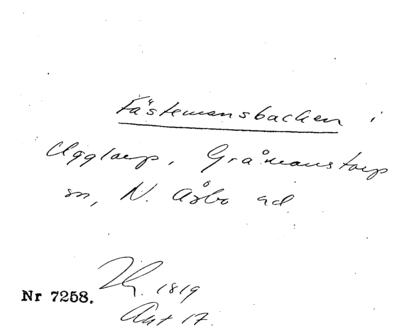 Fästemansbacken i
Uggtorp, Gråmanstorp
sn, N. Åsbo hd
1819
Nr 7258.
Ant 17.